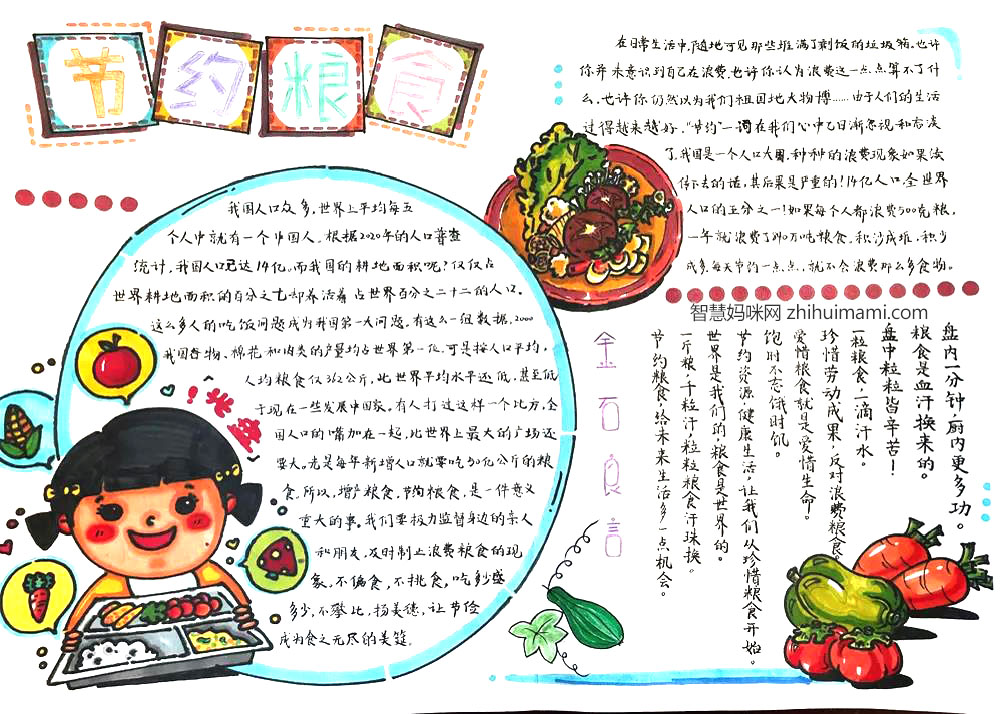 节约粮食
在日常生活中,随地可见那些堆满了剩饭的垃圾箱,也许
你并未意识到自己在浪费,也许你认为浪费这一点点算不了什
么,也许你仍然以为我们祖国地大物博……由于人们的生活
过得越来越好,“节约”一词在我们心中已日渐忽视和右淡
了,我国是一个人口大国,种种的浪费现象如果深
你下去的话,其后果是严重的!14亿人口,全世界
人口的五分之一!如果每个人都浪费500克粮,
一年就浪费了840万吨粮食。积沙成堆,积少
成多,每天节约一点点,就不会浪费那么多食物。
我国人口众多,世界上平均每五
个人中就有一个中国人。根据2020年的人口普查
统计,我国人口已达14亿。而我国的耕地面积呢?仅仅占
世界耕地面积的百分之七却养活着占世界百分之二十二的人口。
这么多人的吃饭问题成为我国第一大问题。有这么一组数据,2000
我国谷物、棉花和肉类的产量均占世界第一位。可是按人口平均,
人均粮食仅362公斤,此世界平均水平还低,甚至低
于现在一些发展中国家。有人打过这样一个比方,全
国人口的嘴加在一起,比世界上最大的广场还
要大。光是每年新增人口就要吃50亿公斤的粮
食。所以,增产粮食,节约粮食,是一件意义
重大的事。我们要极力监督身边的亲人
和朋友,及时制止浪费粮食的现
象。不偏食,不挑食,吃多盛
多少,不攀比,扬美德,让节俭
成为食之无尽的美筵。
光盘!
金石良言
盘内一分钟,厨内更多功。
粮食是血汗换来的。
盘中粒粒皆辛苦!
一粒粮食,一滴汗水。
珍惜劳动成果,反对浪费粮食。
爱惜粮食就是爱惜生命。
饱时不忘饿时饥。
节约资源,健康生活,让我们从珍惜粮食开始。
世界是我们的粮食是世界的。
一斤粮,千粒汗,粒粒粮食汗珠换。
节约粮食,给未来生活多一点机会。
智慧妈咪网 zhihuimami.com